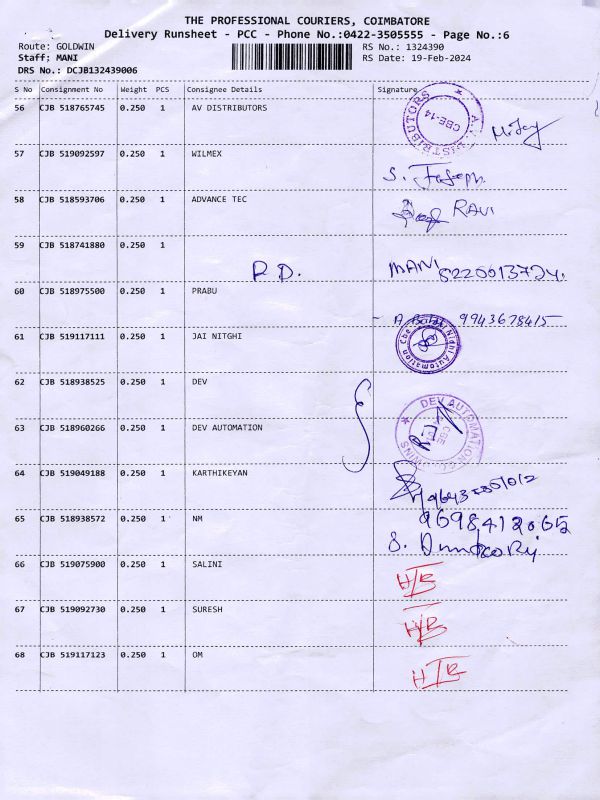 THE PROFESSIONAL COURIERS, COIMBATORE
Delivery Runsheet - PCC - Phone No.:0422-3505555 - Page No.:6
Route: GOLDWIN RS No.: 1324390
Staff; MANI RS Date: 19-Feb-2024
DRS No.: DCJB132439006
S No Consignment No Weight PCS Consignee Details Signature
56 CJB 518765745 0.250 1 AV DISTRIBUTORS
A.V. DISTRIBUTORS CBE-14
57 CJB 519092597 0.250 1 WILMEX
S. Joseph
58 CJB 518593706 0.250 1 ADVANCE TEC
RAVI
59 CJB 518741880 0.250 1
P.D. MANI
60 CJB 518975500 0.250 1 PRABU
9943678415
61 CJB 519117111 0.250 1 JAI NITGHI
62 CJB 518938525 0.250 1 DEV
63 CJB 518960266 0.250 1 DEV AUTOMATION
DEV AUTOMATION
64 CJB 519049188 0.250 1 KARTHIKEYAN
65 CJB 518938572 0.250 1 NM
9698412065
66 CJB 519075900 0.250 1 SALINI
67 CJB 519092730 0.250 1 SURESH
68 CJB 519117123 0.250 1 OM